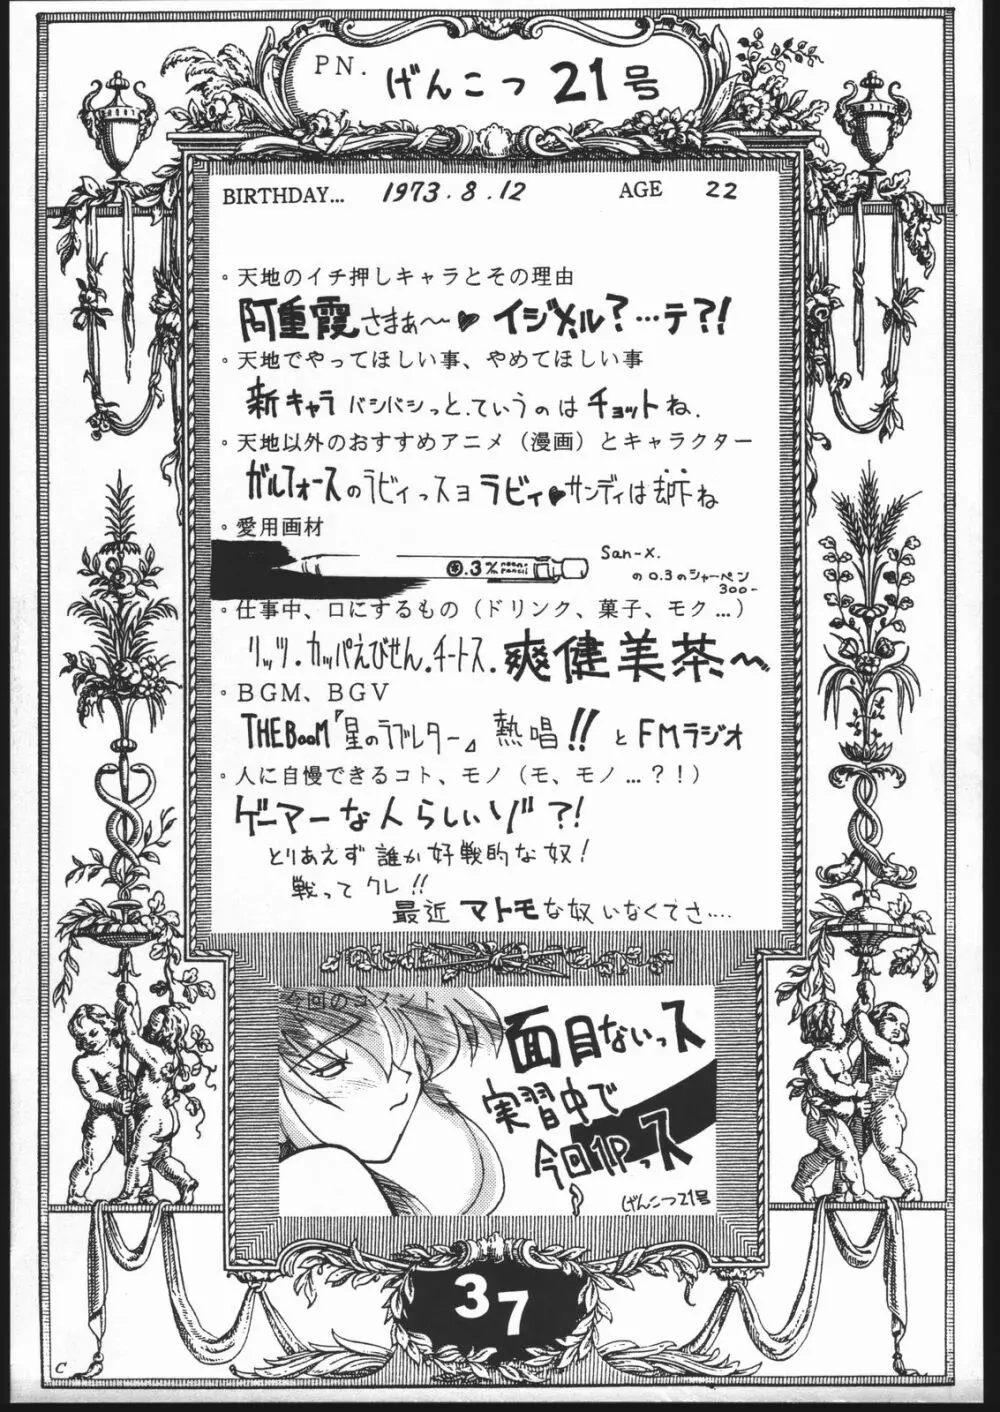 PN. げんこつ 21号
BIRTHDAY... 1973.8.12 AGE 22
。天地のイチ押しキャラとその理由
阿重霞さまぁ〜♥ イジメル?…テ?!
。天地でやってほしい事、やめてほしい事
新キャラ バシバシっと.ていうのは チョットね.
。天地以外のおすすめアニメ（漫画）とキャラクター
ガルフォースのラビィっスョ ラビィ♥サンディは却下ね
。愛用画材
0.3% San-x.
の0.3のシャーペン
300-
。仕事中、口にするもの（ドリンク、菓子、モク…）
リッツ.カッパえびせん.チートス.爽健美茶〜
。BGM、BGV
THE BooM『星のラブレター』熱唱!!とFMラジオ
。人に自慢できるコト、モノ（モ、モノ…?!）
ゲーマーな人らしいゾ?!
とりあえず 誰か好戦的な奴!
戦ってクレ!!
最近 マトモな奴いなくてさ....
今回のコメント
面目ないっス
実習中で
今回1Pっス
げんこつ21号
37
C